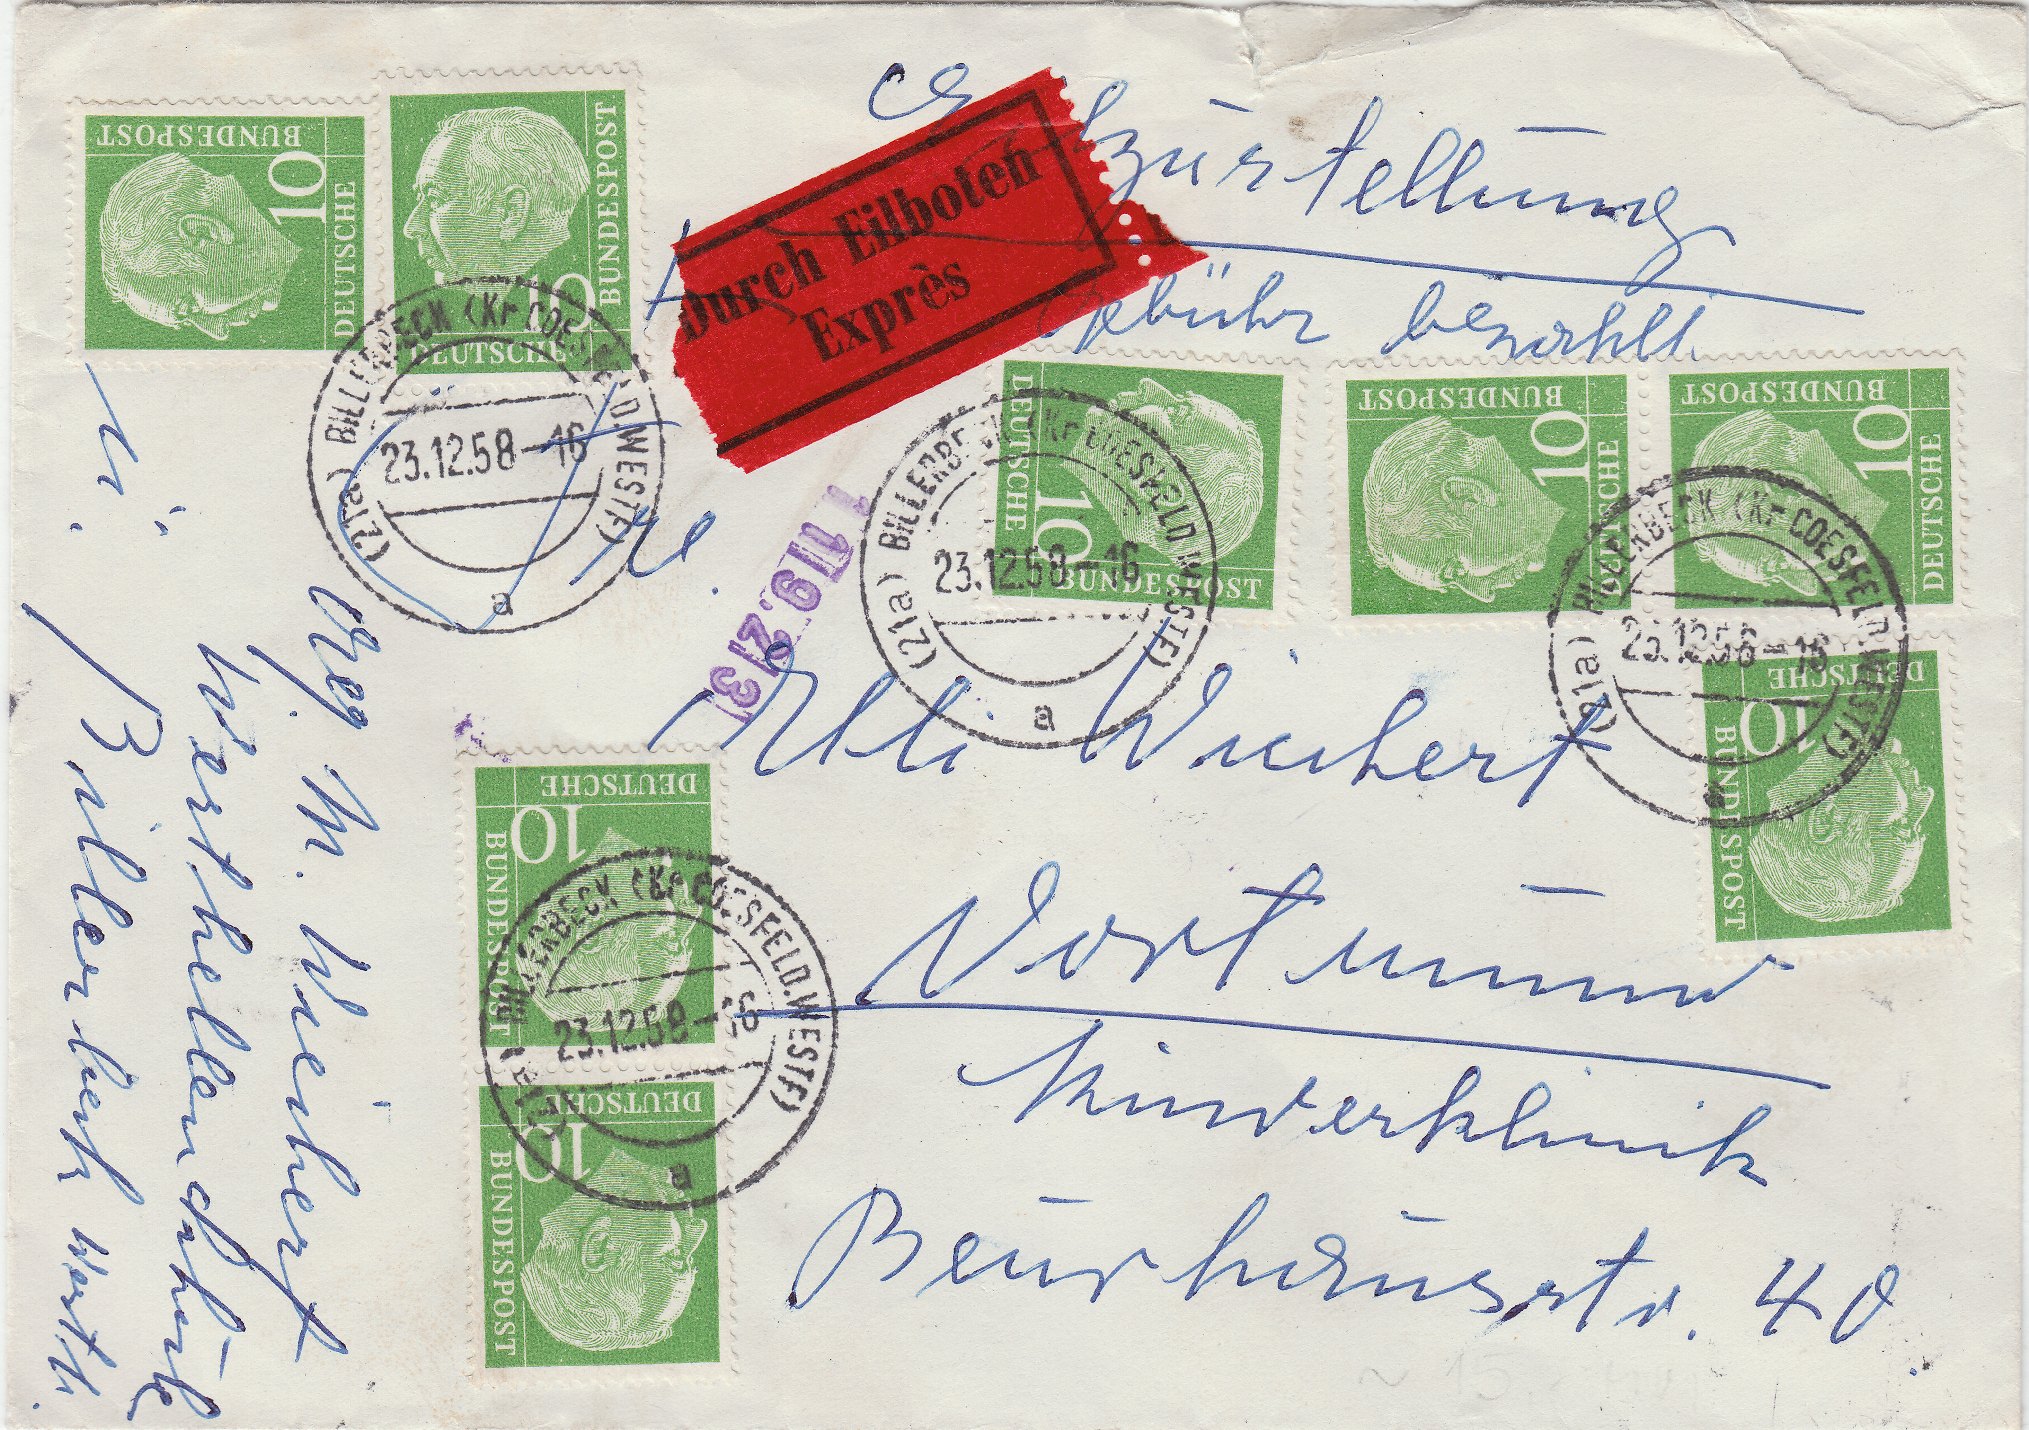 Eilzustellung
Gebühr bezahlt
Durch Eilboten
Exprès
BUNDESPOST
10
DEUTSCHE
10
BUNDESPOST
DEUTSCHE
DEUTSCHE
10
BUNDESPOST
BUNDESPOST
10
DEUTSCHE
BUNDESPOST
10
DEUTSCHE
DEUTSCHE
10
BUNDESPOST
DEUTSCHE
10
BUNDESPOST
DEUTSCHE
10
BUNDESPOST
(21a) BILLERBECK (Kr COESFELD.WESTF)
23.12.58-16
a
(21a) BILLERBECK (Kr COESFELD.WESTF)
23.12.58-16
a
(21a) BILLERBECK (Kr COESFELD.WESTF)
23.12.58-16
a
(21a) BILLERBECK (Kr COESFELD.WESTF)
23.12.58-16
a
Elli Wichert
Dortmund
Kinderklinik
Beurhausstr. 40
Abs. M. Wichert
Billerbeck Westf.